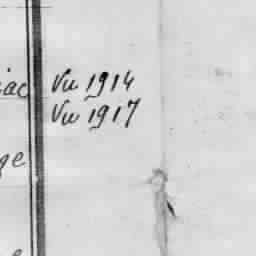 iac Vu 1914
Vu 1917
ge